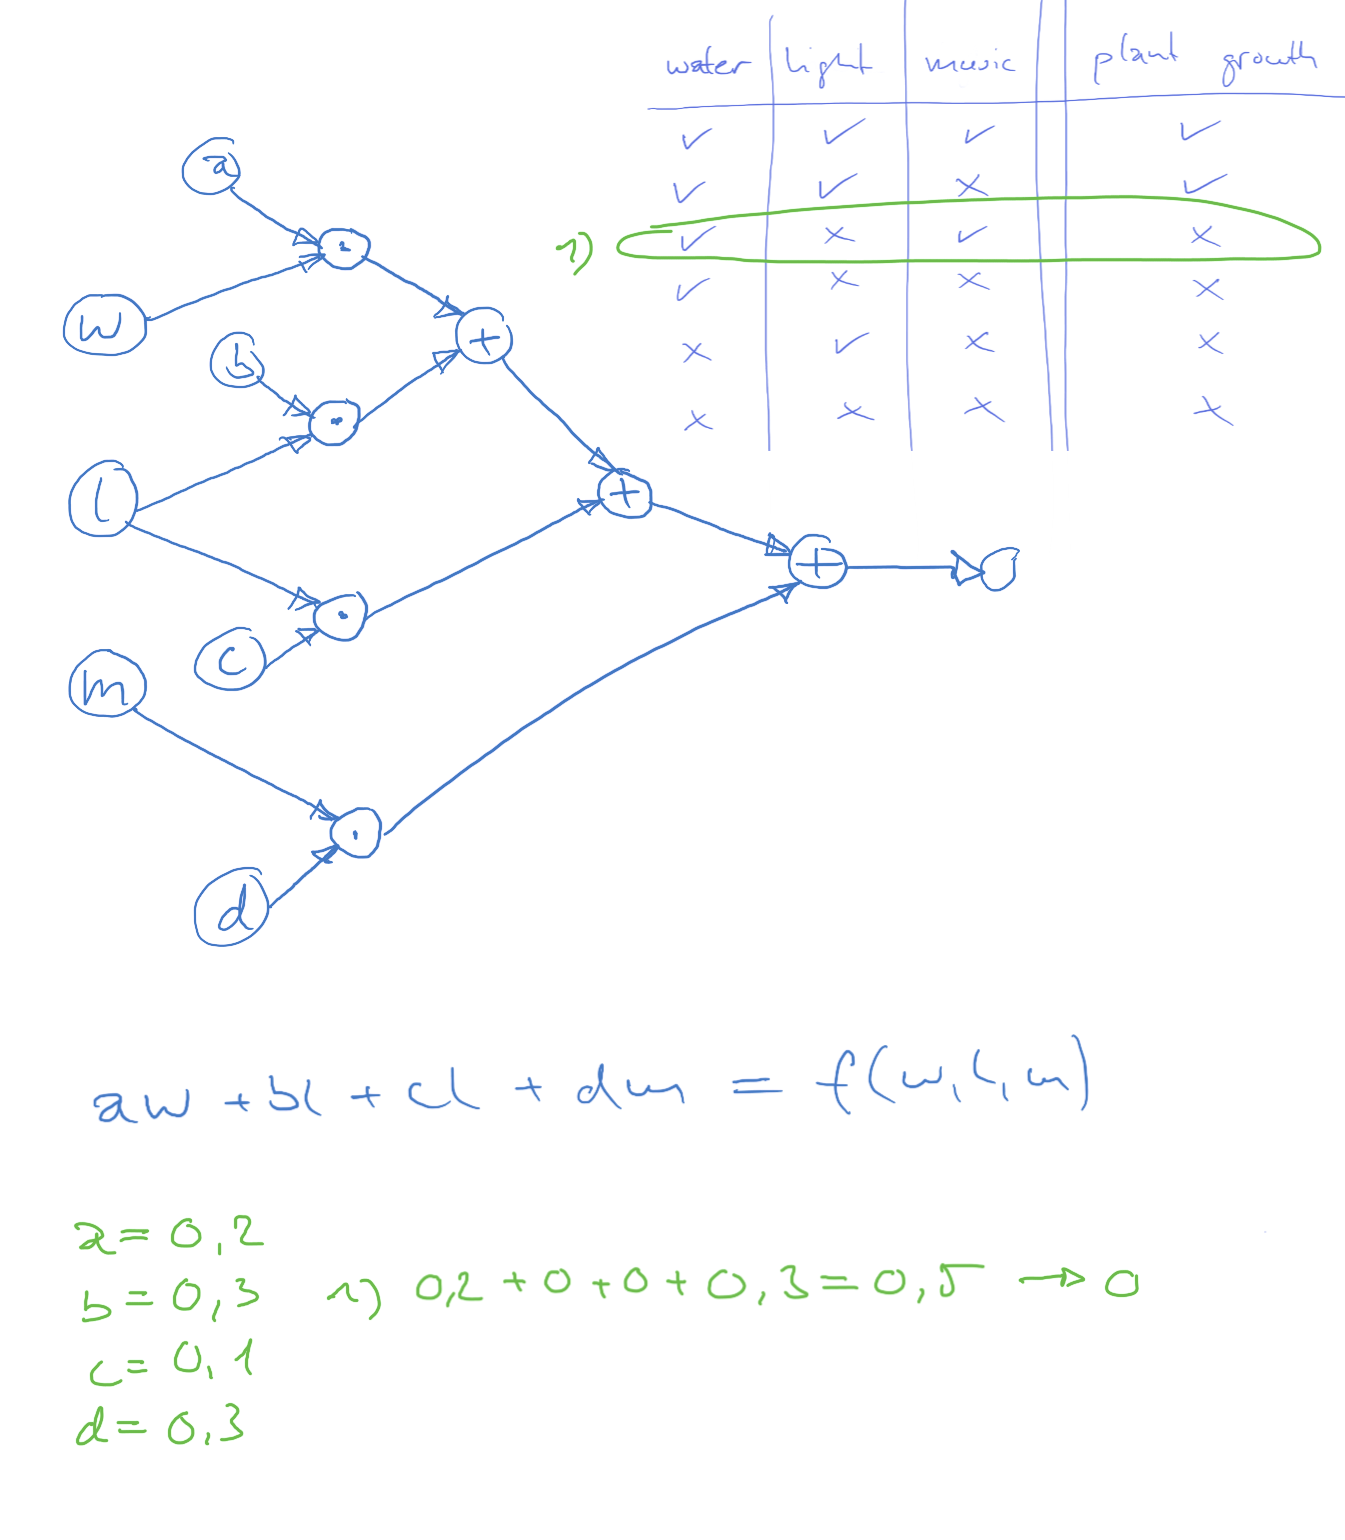 water light music plant growth
✓ ✓ ✓ ✓
✓ ✓ × ✓
1) ✓ × ✓ ×
✓ × × ×
× ✓ × ×
× × × ×
a
·
w
+
b
·
l
+
+
·
c
m
·
d
aw + bl + cl + dm = f(w, l, m)
a = 0,2
b = 0,3 1) 0,2 + 0 + 0 + 0,3 = 0,5 → 0
c = 0,1
d = 0,3